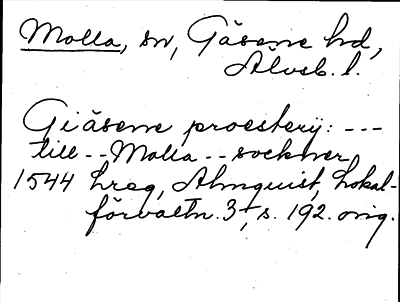 Molla, sn, Gäsene hd,
Älvsb. l.
Giäsene proestery: ---
till -- Molla -- sockner
1544 hreg, Almquist, Lokal-
förvaltn. 3, s. 192. orig.